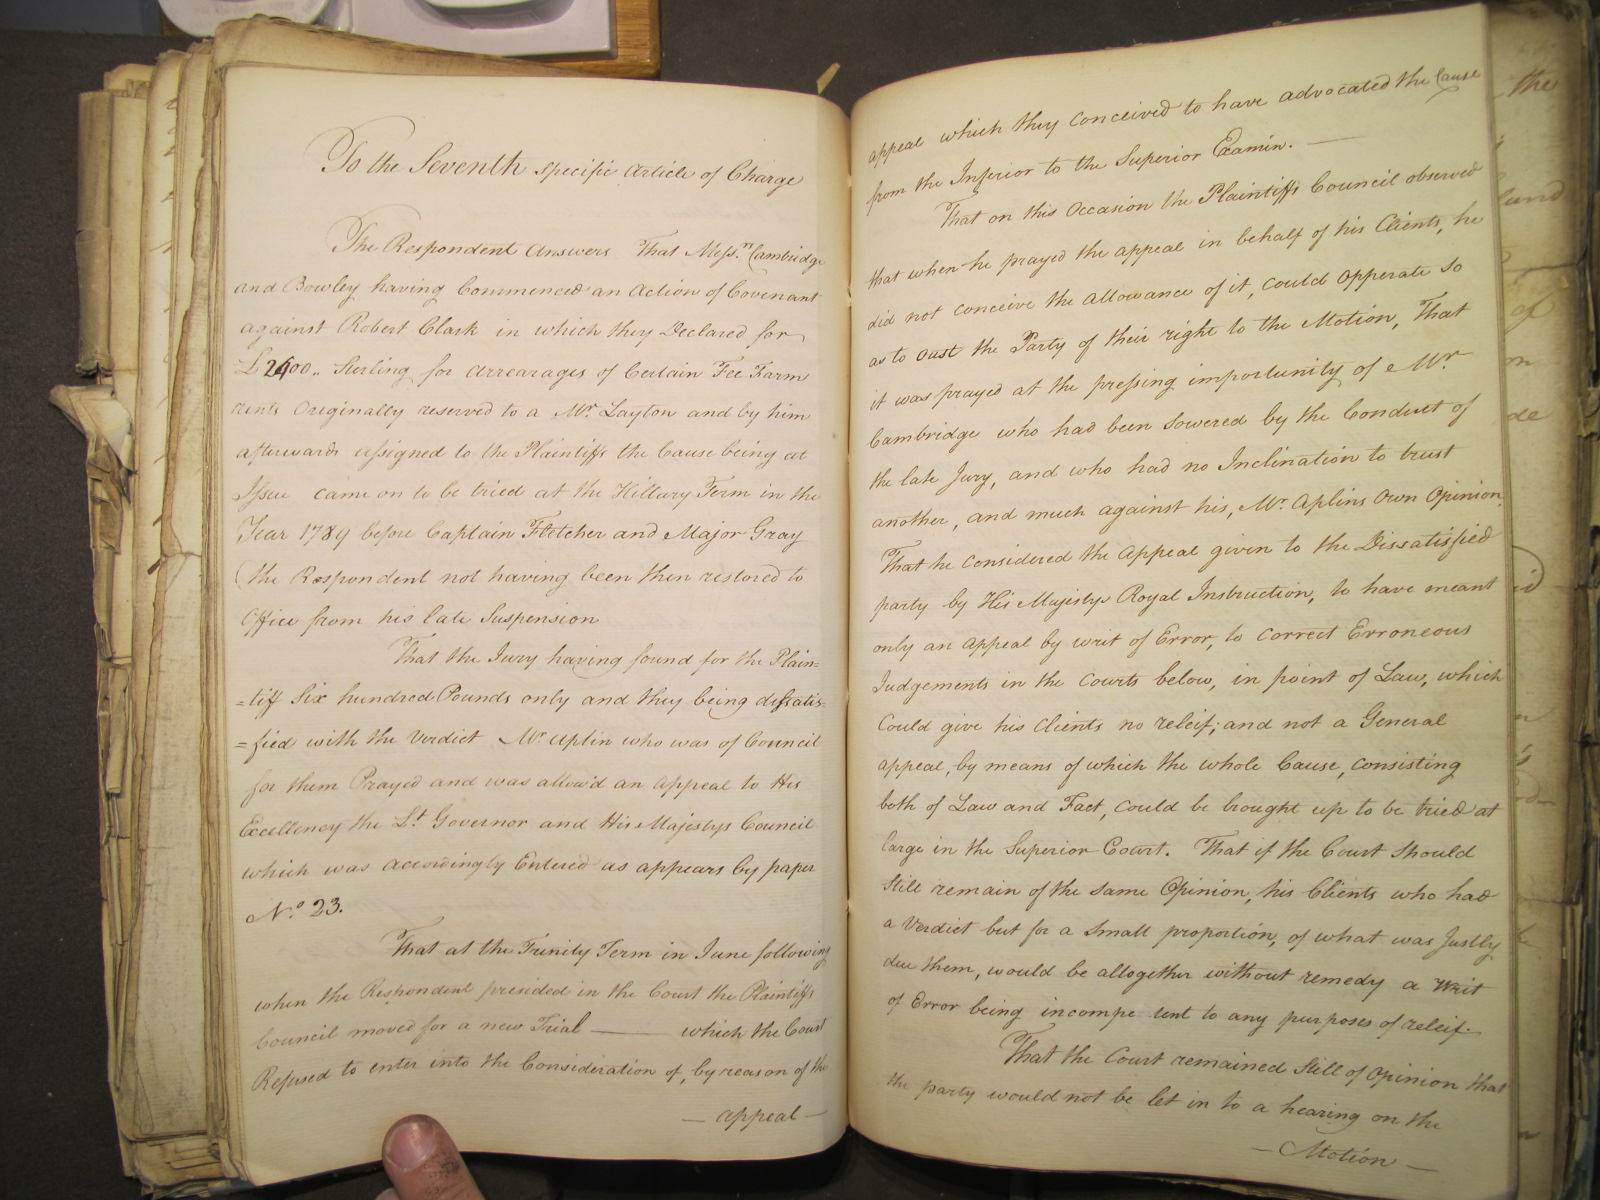 To the Seventh specific article of Charge
The Respondent Answers That Messrs. Cambridge
and Bowley having Commenced an Action of Covenant
against Robert Clark in which they Declared for
£2400,, Sterling for arrearages of Certain Fee Farm
rents Originally reserved to a Mr. Layton and by him
afterwards assigned to the Plaintiffs the Cause being at
Issue came on to be tried at the Hillary Term in the
Year 1789 before Captain Fletcher and Major Gray
(the Respondent not having been then restored to
Office from his late Suspension
That the Jury having found for the Plain=
=tiff Six hundred Pounds only and they being dissatis=
=fied with the Verdict Mr. Aplin who was of Council
for them Prayed and was allow'd an appeal to His
Excellency the Lt. Governor and His Majestys Council
which was accordingly Entered as appears by paper
No. 23.
That at the Trinity Term in June following
when the Respondent presided in the Court the Plaintiffs
Council moved for a new Trial —— which the Court
Refused to enter into the Consideration of, by reason of the
— appeal —
appeal which they Conceived to have advocated the Cause
from the Inferior to the Superior Examin. —
That on this Occasion the Plaintiffs Council observed
that when he prayed the appeal in behalf of his Clients, he
did not conceive the allowance of it, could opperate so
as to oust the Party of their right to the Motion, That
it was prayed at the pressing importunity of Mr.
Cambridge who had been Sowered by the Conduct of
the late Jury, and who had no Inclination to trust
another, and much against his, Mr. Aplins Own Opinion,
That he Considered the appeal given to the Dissatisfied
party by His Majestys Royal Instruction, to have meant
only an appeal by writ of Error, to correct Erroneous
Judgements in the Courts below, in point of Law, which
Could give his Clients no releif; and not a General
appeal, by means of which the whole Cause, consisting
both of Law and Fact, could be brought up to be tried at
large in the Superior Court. That if the Court Should
Still remain of the same Opinion, his Clients who had
a Verdict but for a Small proportion, of what was Justly
due them, would be altogether without remedy a Writ
of Error being incompetent to any purposes of releif.
That the Court remained Still of Opinion that
the party would not be let in to a hearing on the
— Motion —